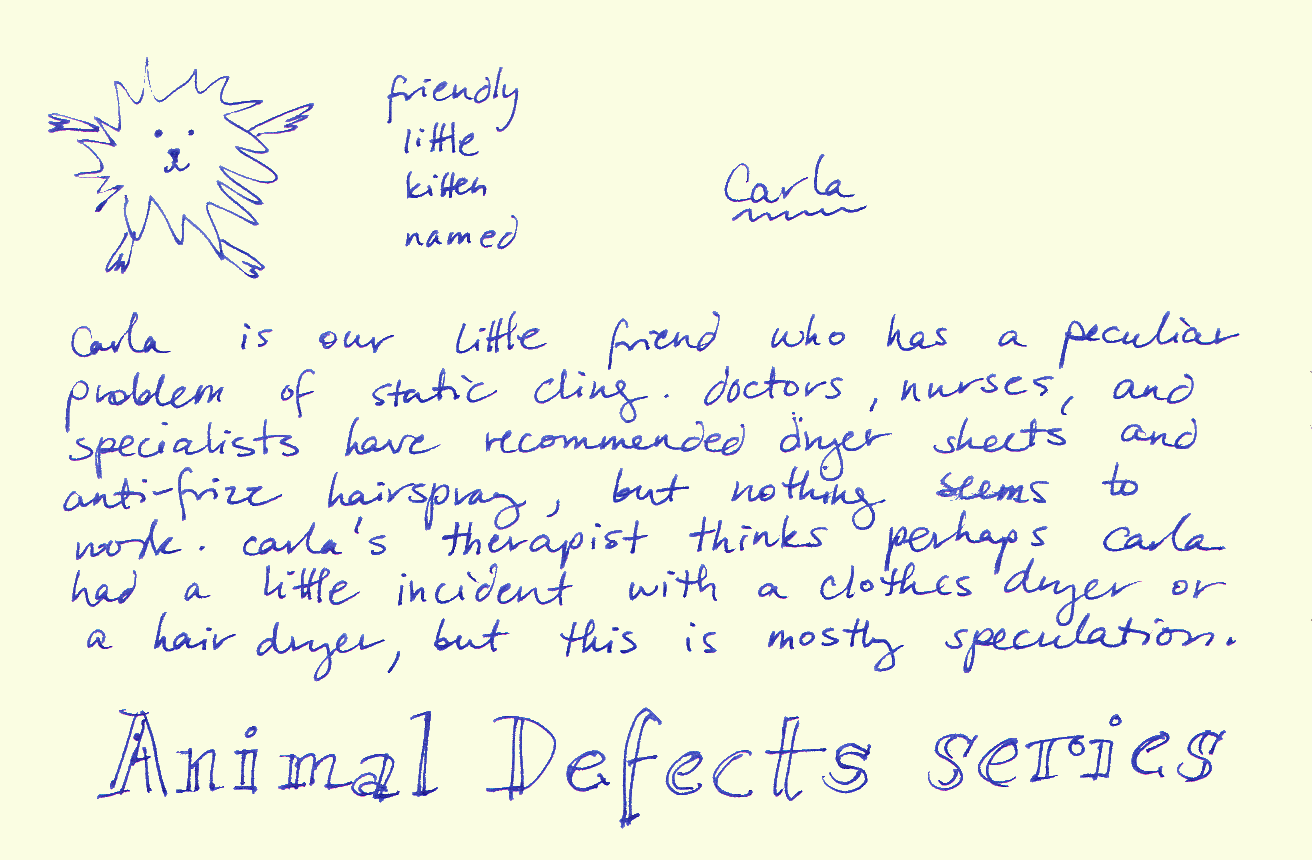 friendly
little
kitten
named
Carla
Carla is our little friend who has a peculiar
problem of static cling. doctors, nurses, and
specialists have recommended dryer sheets and
anti-frizz hairspray, but nothing seems to
work. carla's therapist thinks perhaps carla
had a little incident with a clothes dryer or
a hair dryer, but this is mostly speculation.
Animal Defects series